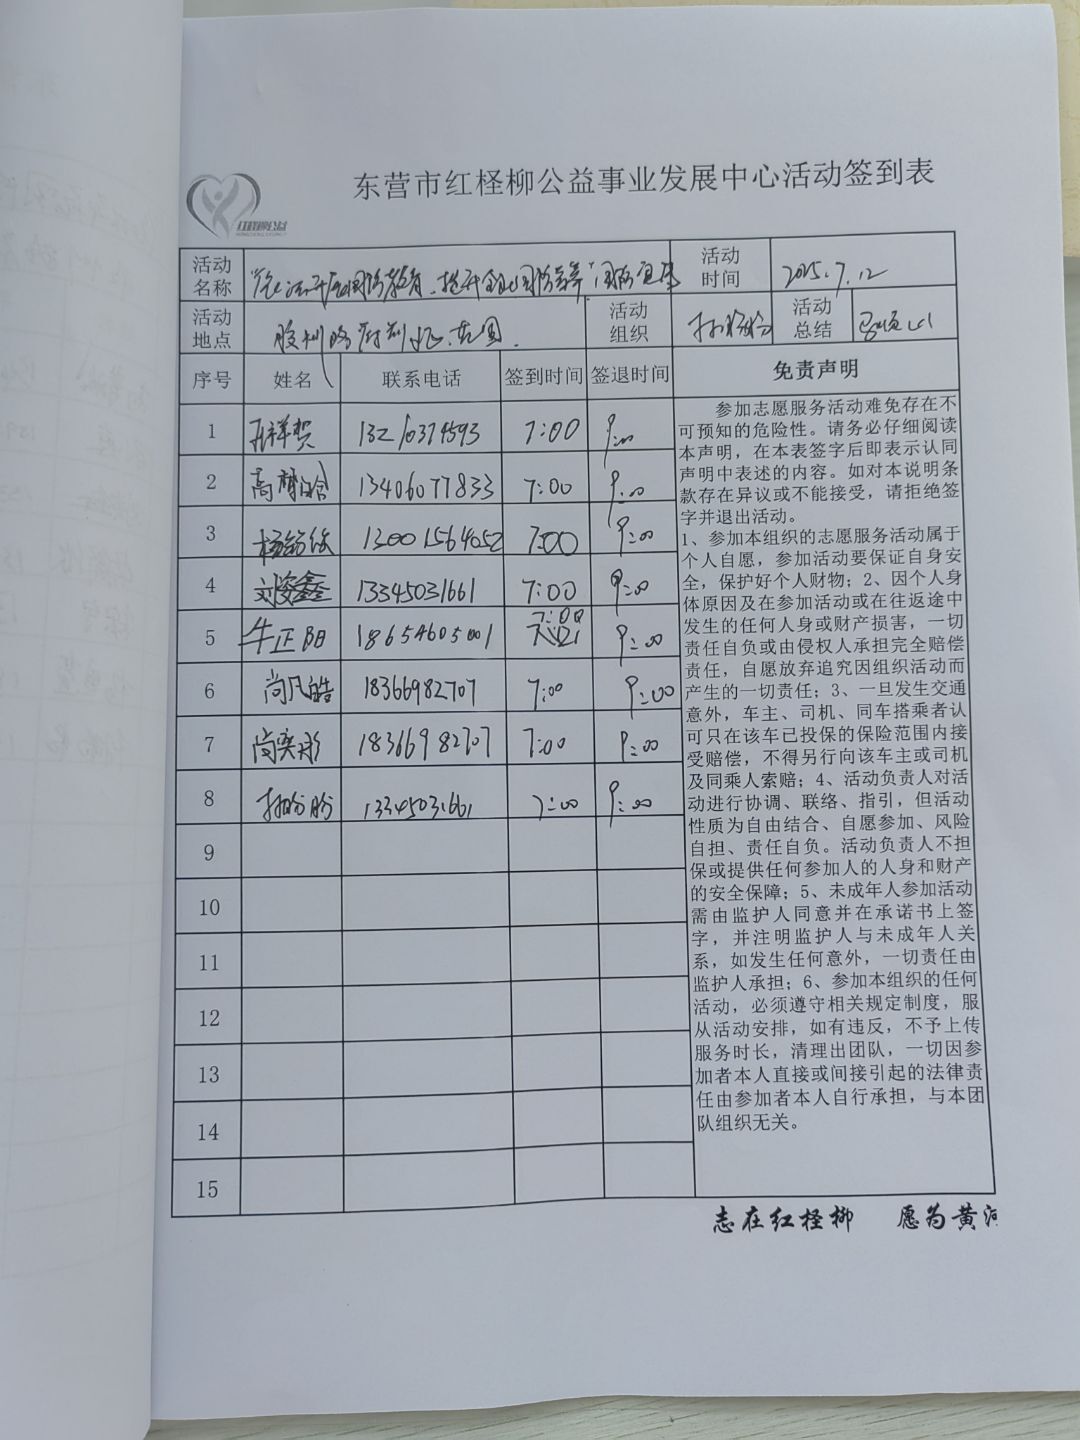 东营市红柽柳公益事业发展中心活动签到表
红柽柳公益
活动名称
国防教育
活动时间 2025.7.12
活动地点 胶州路
活动组织
活动总结
序号 姓名 联系电话 签到时间 签退时间 免责声明
1 13210374593 7:00 9:00
2 13406077833 7:00 9:00
3 13001564052 7:00 9:00
4 刘姿鑫 13345031661 7:00 9:00
5 牛正阳 18654605001 7:00 9:00
6 尚凡皓 18366982707 7:00 9:00
7 尚奕彤 18366982707 7:00 9:00
8 13345031661 7:00 9:00
9
10
11
12
13
14
15
参加志愿服务活动难免存在不
可预知的危险性。请务必仔细阅读
本声明，在本表签字后即表示认同
声明中表述的内容。如对本说明条
款存在异议或不能接受，请拒绝签
字并退出活动。
1、参加本组织的志愿服务活动属于
个人自愿，参加活动要保证自身安
全，保护好个人财物；2、因个人身
体原因及在参加活动或在往返途中
发生的任何人身或财产损害，一切
责任自负或由侵权人承担完全赔偿
责任，自愿放弃追究因组织活动而
产生的一切责任；3、一旦发生交通
意外，车主、司机、同车搭乘者认
可只在该车已投保的保险范围内接
受赔偿，不得另行向该车主或司机
及同乘人索赔；4、活动负责人对活
动进行协调、联络、指引，但活动
性质为自由结合、自愿参加、风险
自担、责任自负。活动负责人不担
保或提供任何参加人的人身和财产
的安全保障；5、未成年人参加活动
需由监护人同意并在承诺书上签
字，并注明监护人与未成年人关
系，如发生任何意外，一切责任由
监护人承担；6、参加本组织的任何
活动，必须遵守相关规定制度，服
从活动安排，如有违反，不予上传
服务时长，清理出团队，一切因参
加者本人直接或间接引起的法律责
任由参加者本人自行承担，与本团
队组织无关。
志在红柽柳 愿为黄河